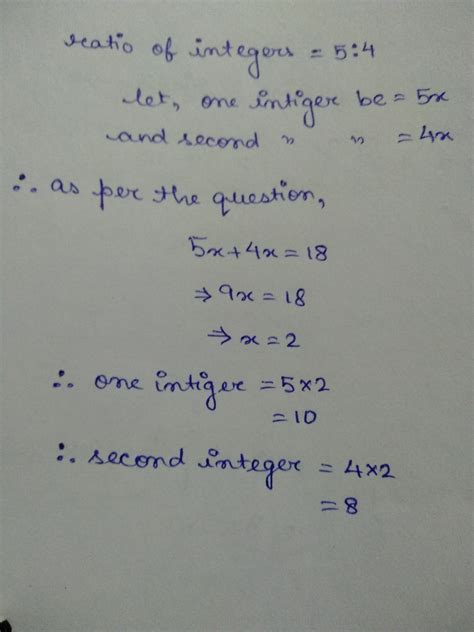 ratio of integers = 5:4
let, one intiger be = 5x
and second " " = 4x
∴ as per the question,
5x+4x=18
⇒ 9x=18
⇒ x=2
∴ one intiger =5×2
=10
∴ second integer = 4×2
=8